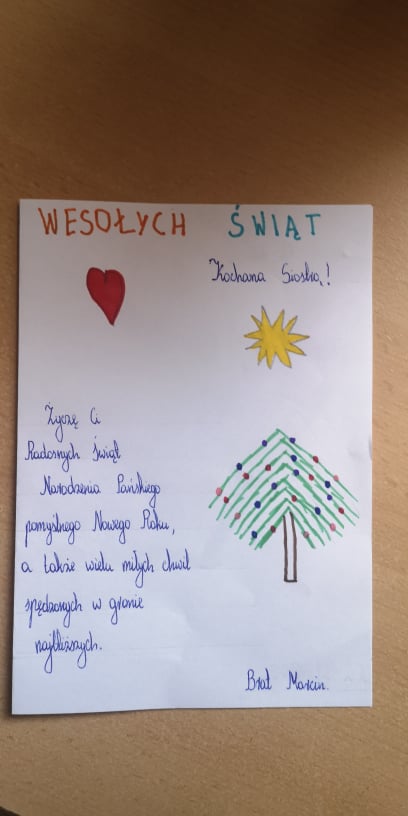 WESOŁYCH ŚWIĄT
Kochana Siostro,!
Życzę Ci
Radosnych Świąt
Narodzenia Pańskiego
pomyślnego Nowego Roku,
a także wielu miłych chwil
spędzonych w gronie
najbliższych.
Brat Marcin.